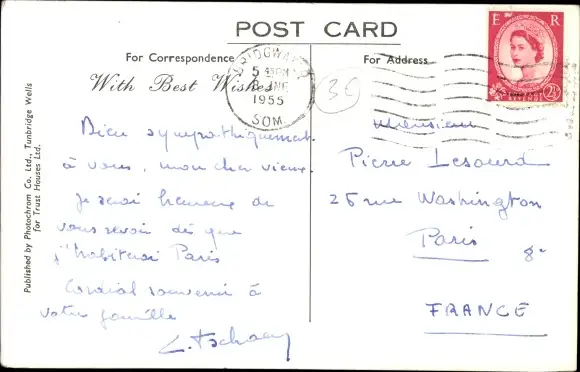 POST CARD
For Correspondence
For Address
With Best Wishes
BRIDGWATER
5 45 PM
JNE
1955
SOM.
E R
2½
36
Published by Photochrom Co. Ltd., Tunbridge Wells
for Trust Houses Ltd.
Bien sympathiquement
à vous, mon cher vieux.
Je serai heureux de
vous revoir dès que
j'habiterai Paris
Cordial souvenir à
votre famille
Monsieur
Pierre Lesourd
25 rue Washington
Paris
8e
FRANCE